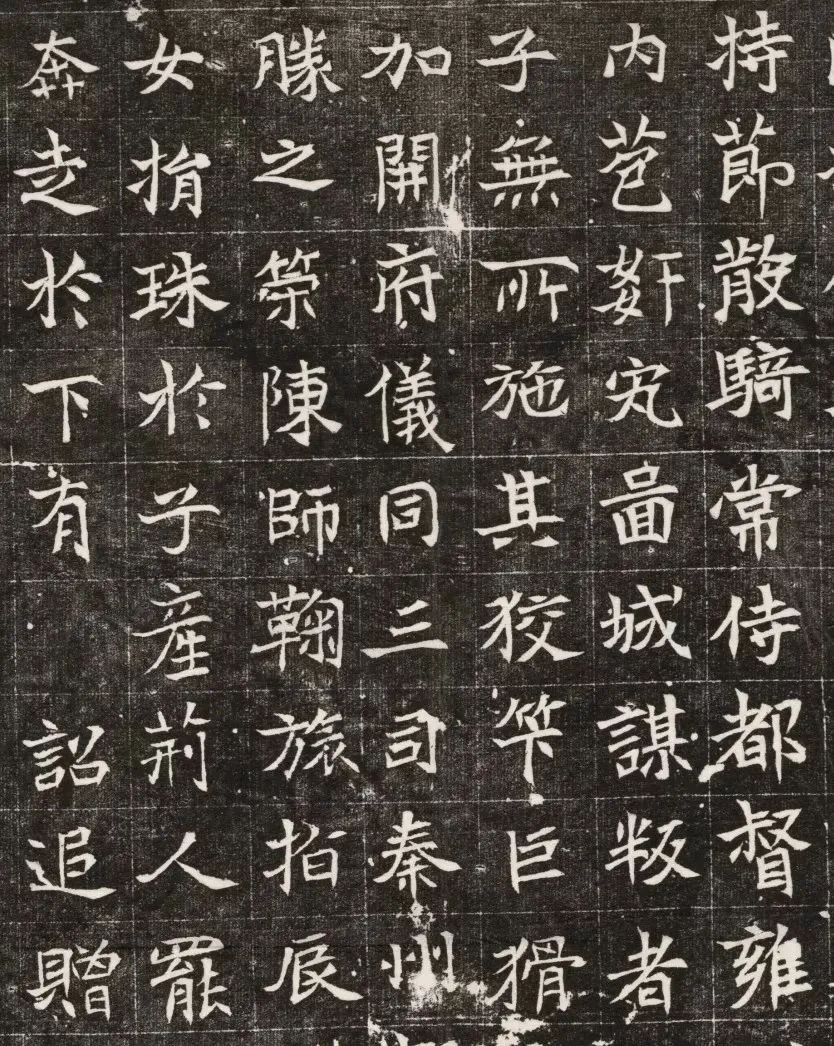 持節散騎常侍都督雍
内苞姧宄啚城謀叛者
子無所施其狡筭巨猾
加開府儀同三司秦州
勝之策陳師鞠旅指辰
女捐珠於子產荊人罷
奔走於下有 詔追贈